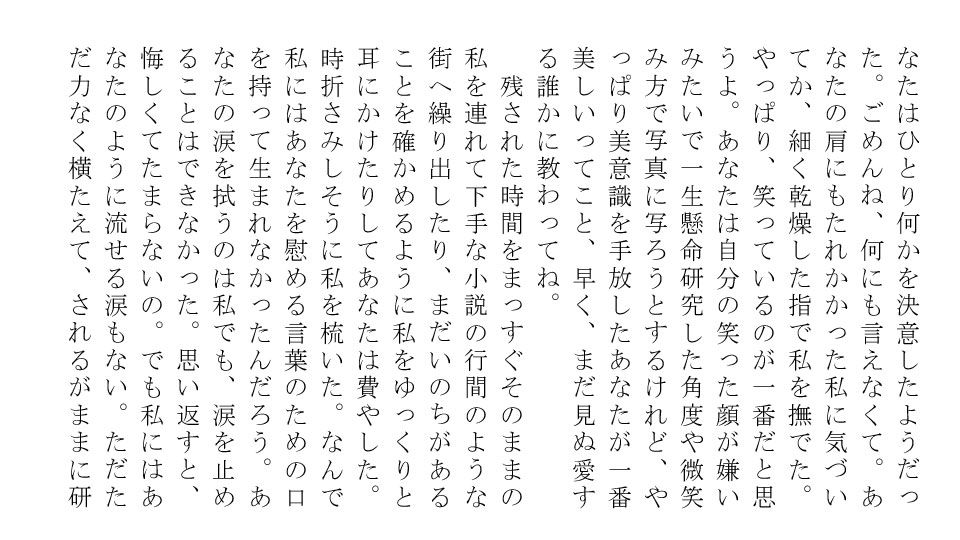 なたはひとり何かを決意したようだっ
た。ごめんね、何にも言えなくて。あ
なたの肩にもたれかかった私に気づい
てか、細く乾燥した指で私を撫でた。
やっぱり、笑っているのが一番だと思
うよ。あなたは自分の笑った顔が嫌い
みたいで一生懸命研究した角度や微笑
み方で写真に写ろうとするけれど、や
っぱり美意識を手放したあなたが一番
美しいってこと、早く、まだ見ぬ愛す
る誰かに教わってね。
　残された時間をまっすぐそのままの
私を連れて下手な小説の行間のような
街へ繰り出したり、まだいのちがある
ことを確かめるように私をゆっくりと
耳にかけたりしてあなたは費やした。
時折さみしそうに私を梳いた。なんで
私にはあなたを慰める言葉のための口
を持って生まれなかったんだろう。あ
なたの涙を拭うのは私でも、涙を止め
ることはできなかった。思い返すと、
悔しくてたまらないの。でも私にはあ
なたのように流せる涙もない。ただた
だ力なく横たえて、されるがままに研